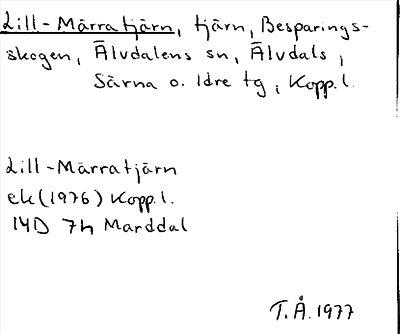 Lill-Märratjärn, tjärn, Besparings-
skogen, Älvdalens sn, Älvdals,
Särna o. Idre tg, Kopp.l.
Lill-Märratjärn
ek (1976) Kopp.l.
14D 7h Marddal
T.Å. 1977